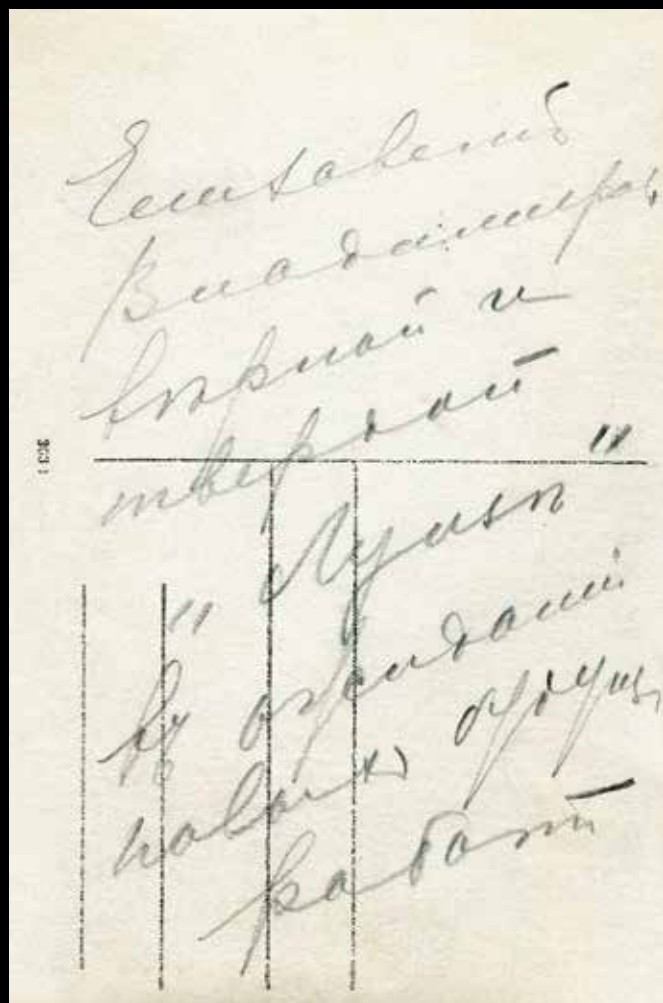 Елизавет
Владимиров
вѣрной и
твердой
"Луизѣ"
въ ожиданіи
новыхъ будущ
работ
3031